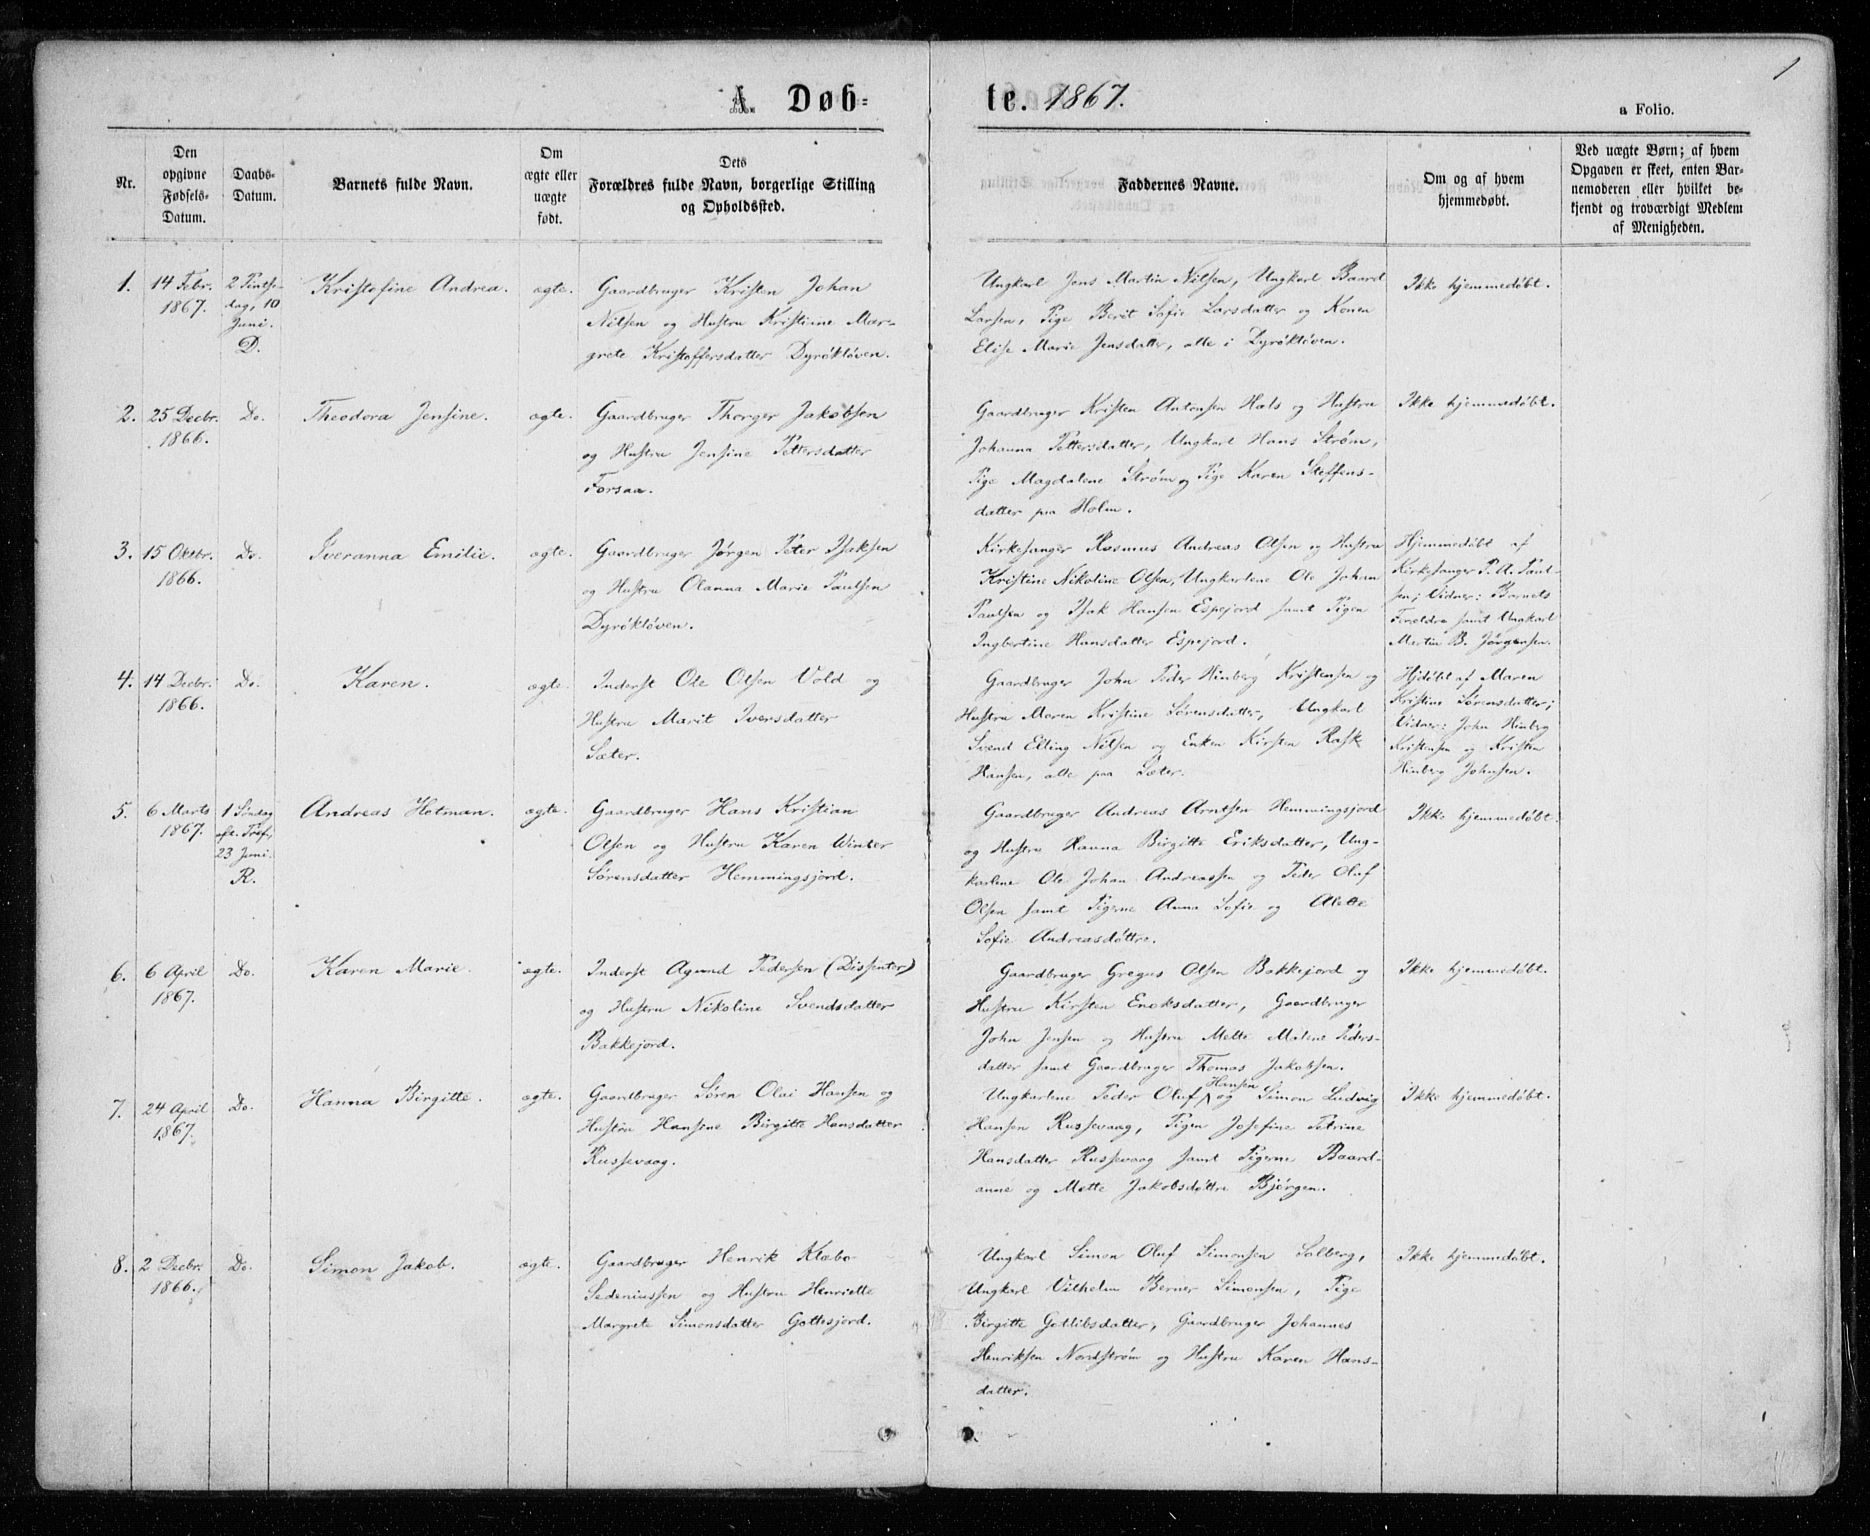 1
A. Døb-
te. 1867.
a Folio.
Nr.
Den
opgivne
Fødsels-
Datum.
Daabs-
Datum.
Barnets fulde Navn.
Om
ægte eller
uægte
født.
Dets
Forældres fulde Navn, borgerlige Stilling
og Opholdssted.
Faddernes Navne.
Om og af hvem
hjemmedøbt.
Ved uægte Børn; af hvem
Opgaven er skeet, enten Bar-
nemoderen eller hvilket be-
kjendt og troværdigt Medlem
af Menigheden.
1.
14 Febr.
1867.
2 Pintse-
dag, 10
Juni.
D.
Kristofine Andrea.
ægte.
Gaardbruger Kristen Johan
Nilsen og Hustru Kristine Mar-
grete Kristoffersdatter Dyrøkløven.
Ungkarl Jens Martin Nilsen, Ungkarl Baard
Larsen, Pige Berit Sofie Larsdatter og Konen
Elise Marie Jensdatter, alle i Dyrøkløven.
Ikke hjemmedøbt.
2.
25 Decbr.
1866.
Do.
Theodora Jensine.
ægte.
Gaardbruger Thorger Jakobsen
og Hustru Jensine Pettersdatter
Forsaa.
Gaardbruger Kristen Antonsen Hals og Hustru
Johanna Pettersdatter, Ungkarl Hans Strøm,
Pige Magdalene Strøm og Pige Karen Steffens-
datter paa Holm.
Ikke hjemmedøbt.
3.
15 Oktbr.
1866.
Do.
Iveranna Emilie.
ægte.
Gaardbruger Jørgen Peter Isaksen
og Hustru Olanna Marie Paulsen
Dyrøkløven.
Kirkesanger Rasmus Andreas Olsen og Hustru
Kristine Nikoline Olsen, Ungkarlene Ole Johan
Paulsen og Isak Hansen Espejord samt Pigen
Ingbertine Hansdatter Espejord.
Hjemmedøbt af
Kirkesanger P. A. Paul-
sen; Vidner: Barnets
Foreldre samt Ungkarl
Martin B. Jørgensen.
4.
14 Decbr.
1866.
Do.
Karen.
ægte.
Inderst Ole Olsen Vold og
Hustru Marit Iversdatter
Sæter.
Gaardbruger John Peder Hinberg Kristensen og
Hustru Maren Kristine Sørensdatter, Ungkarl
Svend Elling Nilsen og Enken Kirsten Rask
Hansen, alle paa Sæter.
Hjdøbt af Maren
Kristine Sørensdatter;
Vidner: John Hinberg
Kristensen og Kristen
Hinberg Johnsen.
5.
6 Marts
1867.
1 Søndag
eft. Tref.,
23 Juni.
R.
Andreas Hotman.
ægte.
Gaardbruger Hans Kristian
Olsen og Hustru Karen Winter
Sørensdatter Hemmingsjord.
Gaardbruger Andreas Arntsen Hemmingsjord
og Hustru Hanna Birgitte Eriksdatter, Ung-
karlene Ole Johan Andreassen og Peder Oluf
Olsen samt Pigerne Anna Sofie og Alette
Sofie Andreasdøttre.
Ikke hjemmedøbt.
6.
6 April
1867.
Do.
Karen Marie.
ægte.
Inderst Agund Pedersen (Dissenter)
og Hustru Nikoline Svendsdatter
Bakkejord.
Gaardbruger Gregus Olsen Bakkejord og
Hustru Kirsten Enoksdatter, Gaardbruger
John Jensen og Hustru Mette Malene Peders-
datter samt Gaardbruger Thomas Jakobsen.
Ikke hjemmedøbt.
7.
24 April
1867.
Do.
Hanna Birgitte.
ægte.
Gaardbruger Søren Olai Hansen og
Hustru Hansine Birgitte Hansdatter
Russevaag.
Ungkarlene Peder Oluf Hansen og Simon Ludvig
Hansen Russevaag, Pigen Josefine Petrine
Hansdatter Russevaag samt Pigerne Baard-
anne og Mette Jakobsdøttre Bjørgen.
Ikke hjemmedøbt.
8.
2 Decbr.
1866.
Do.
Simon Jakob.
ægte.
Gaardbruger Henrik Klæbo
Sedeniussen og Hustru Henriette
Margrete Simonsdatter Gottesjord.
Ungkarl Simon Oluf Simonsen Solberg,
Ungkarl Vilhelm Berner Simonsen, Pige
Birgitte Gotlibsdatter, Gaardbruger Johannes
Henriksen Nordstrøm og Hustru Karen Hans-
datter.
Ikke hjemmedøbt.